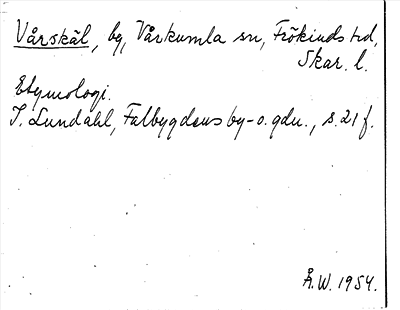 Vårskäl, by, Vårkumla sn, Frökinds hd,
Skar. l.
Etymologi.
I. Lundahl, Falbygdens by- o. gdn., s. 21 f.
Å. W. 1954.